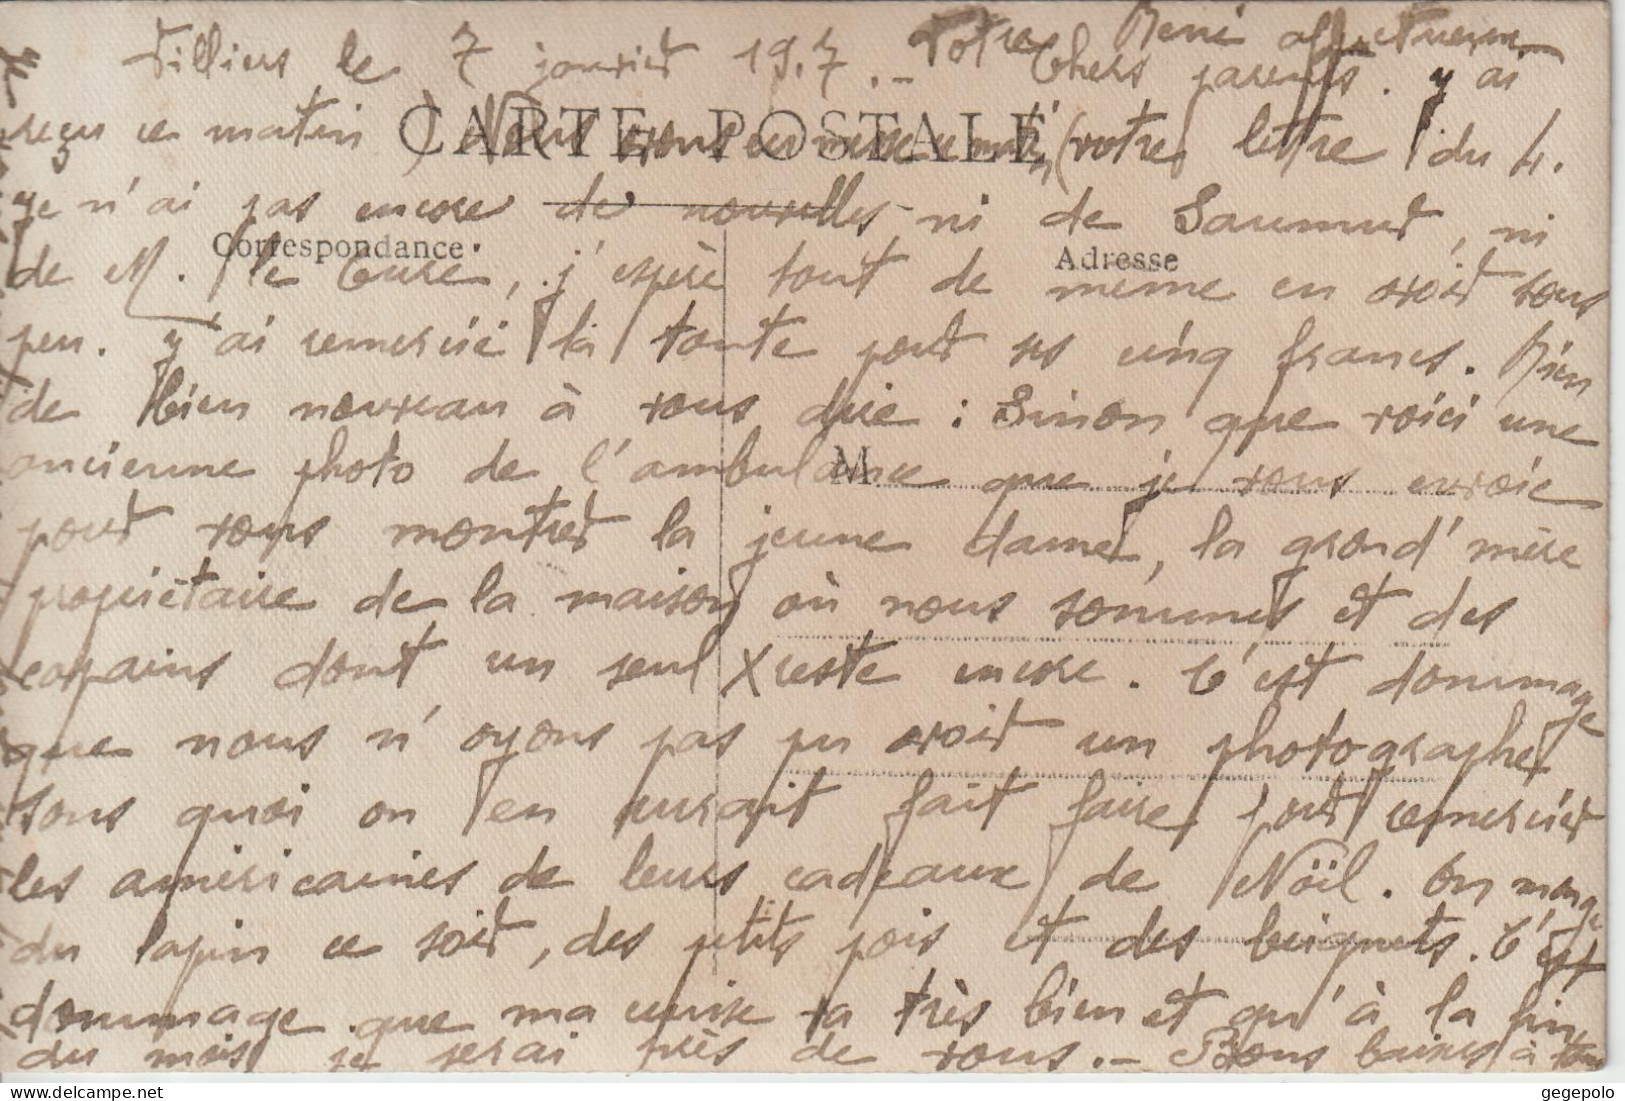 Tilliers le 7 janvier 19.7. - Votre René affectueux
Chers parents. J'ai
reçu ce matin (Nous avons eu messe ce matin) votre lettre du 4.
Je n'ai pas encore de nouvelles ni de Saumur, ni
de M. le Curé, j'espère tout de même en avoir sous
peu. J'ai remercié la tante pour ses cinq francs. Rien
de bien nouveau à vous dire : Sinon que voici une
ancienne photo de l'ambulance que je vous envoie
pour vous montrer la jeune dame, la grand'mère
propriétaire de la maison où nous sommes et des
copains dont un seul reste encore. C'est dommage
que nous n'ayons pas pu avoir un photographe
sans quoi on en aurait fait faire pour remercier
les américaines de leurs cadeaux de Noël. On mange
du lapin ce soir, des petits pois et des beignets. C'est
dommage que ma cuisse va très bien et qu'à la fin
du mois je serai près de vous. - Bons baisers à tous
CARTE POSTALE
Correspondance
Adresse
M
gegepolo